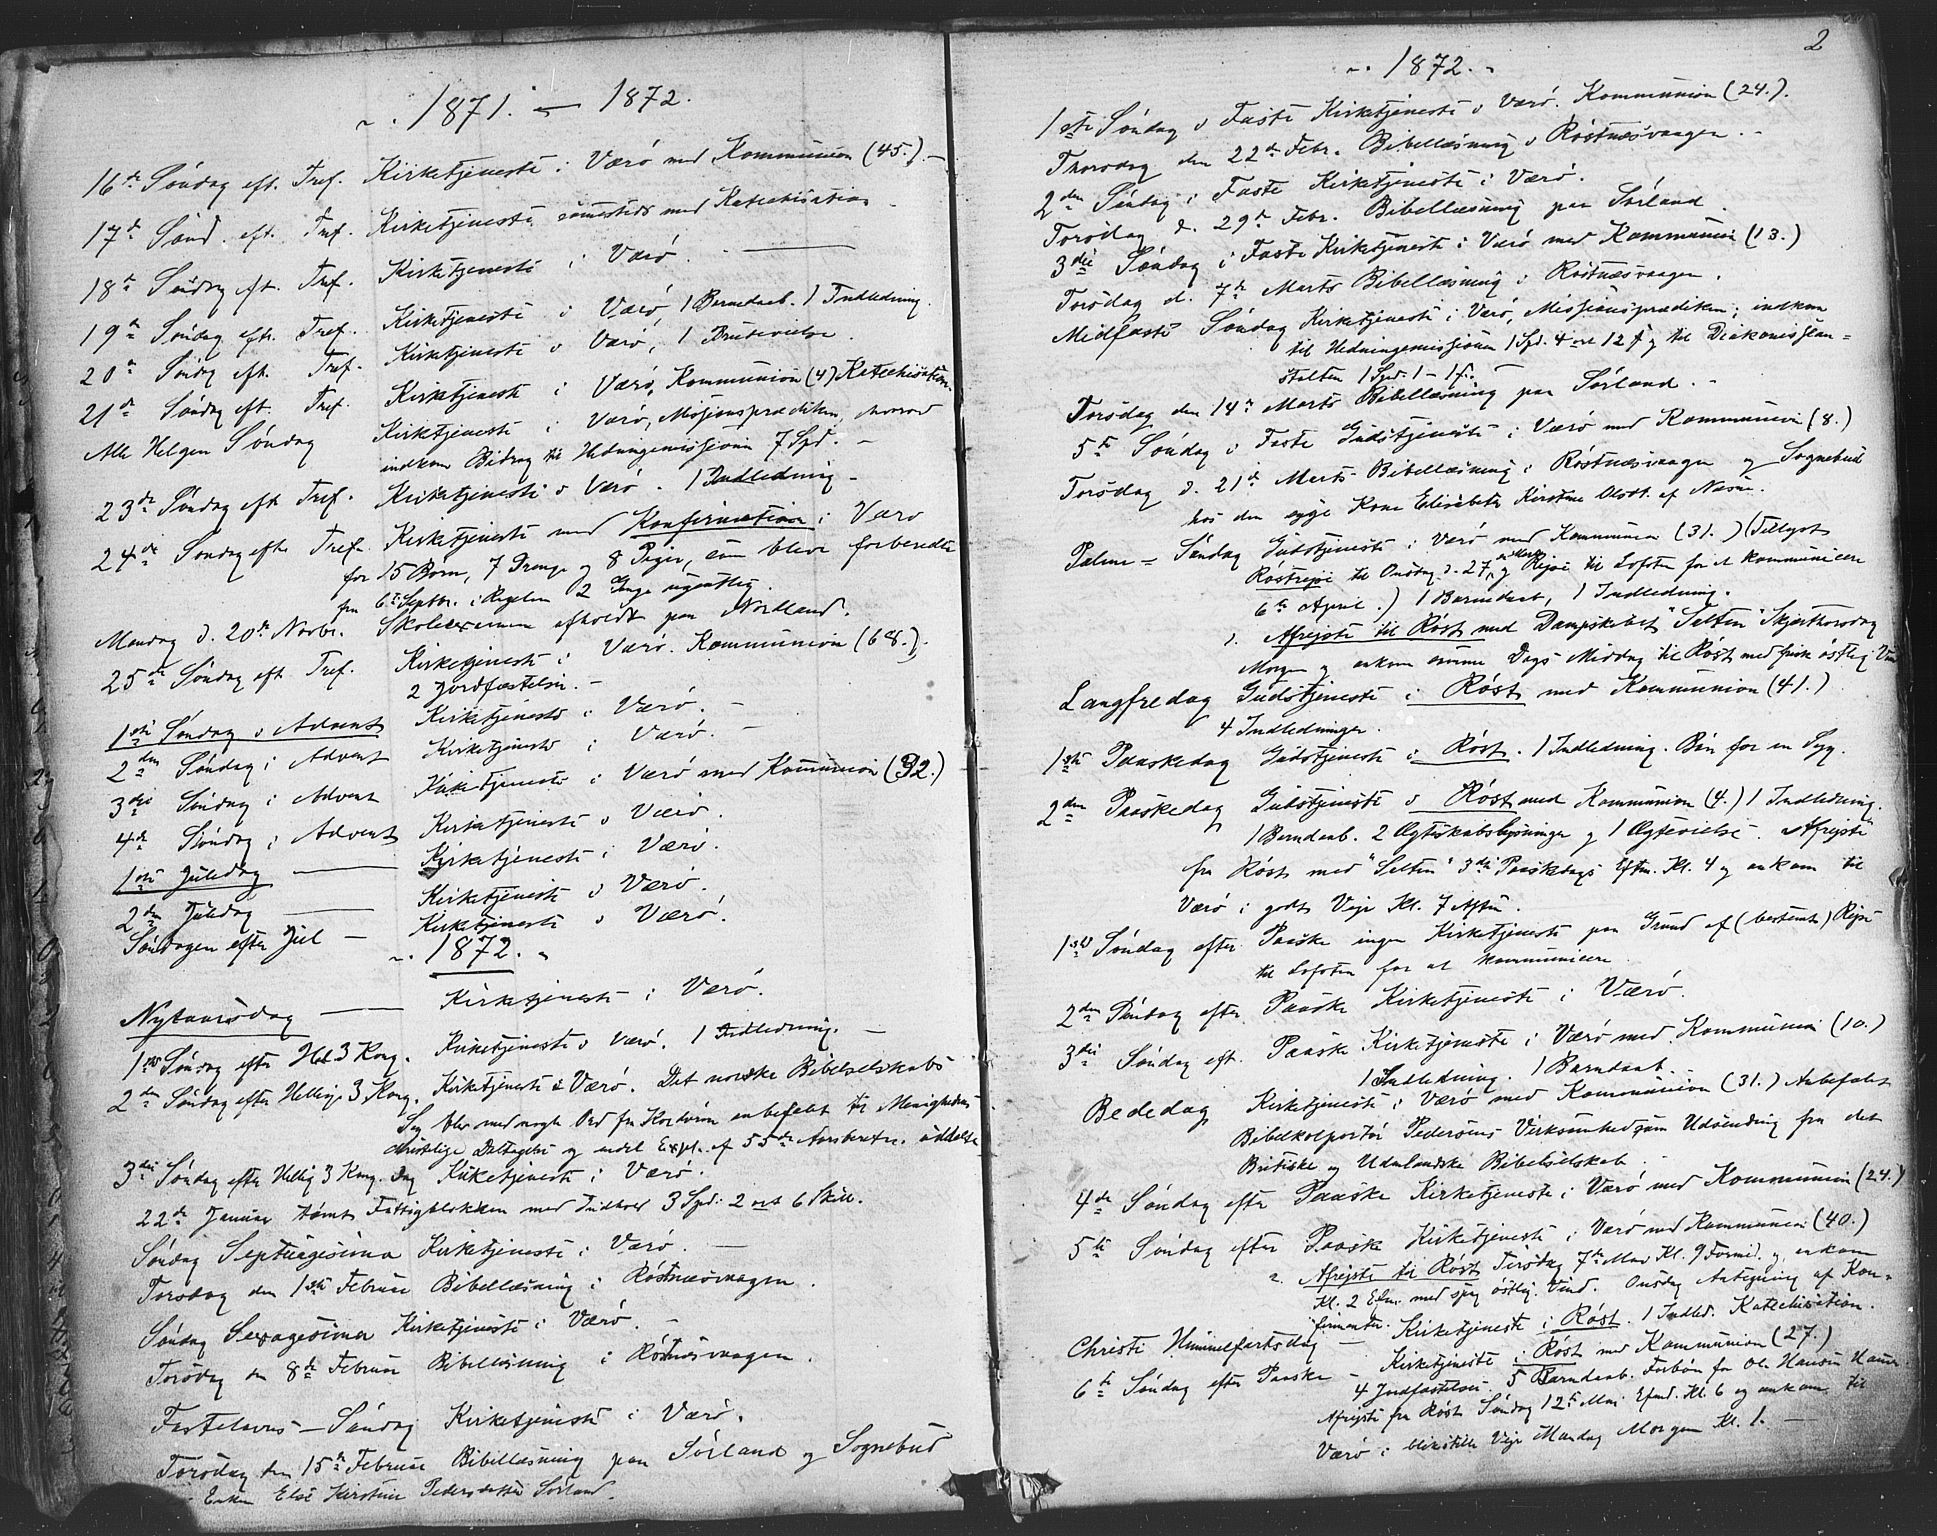 1871. — 1872.
16de Søndag eft. Tref. Kirketjeneste i Værø med Kommunion (45.) —
17de Sønd. eft. Tref. Kirketjeneste sammesteds med Katechisation
18de Søndag eft. Tref. Kirketjeneste i Værø.
19de Søndag eft. Tref. Kirketjeneste i Værø, 1 Barnedaab. 1 Indledning.
20de Søndag eft. Tref. Kirketjeneste i Værø, 1 Brudevielse.
21de Søndag eft. Tref. Kirketjeneste i Værø, Kommunion (4) Katechisation.
Alle Helgen Søndag Kirketjeneste i Værø, Missionsprædiken, hvorved
indkom Bidrag til Hedningemissionen 7 Spd. —
23de Søndag eft. Tref. Kirketjeneste i Værø. 1 Indledning —
24de Søndag eft. Tref. Kirketjeneste med Konfirmation i Værø
for 15 Børn, 7 Drenge og 8 Piger, som bleve forberedte
fra 6te Septbr. i Regelen 2 Gange ugentlig.
Mandag d. 20de Novbr. Skoleexamen afholdt paa Nordland.
25de Søndag eft. Tref. Kirketjeneste i Værø. Kommunion (68.)
2 Jordfæstelser. —
1ste Søndag i Advent Kirketjeneste i Værø. —
2den Søndag i Advent Kirketjeneste i Værø. —
3die Søndag i Advent Kirketjeneste i Værø med Kommunion (32.)
4de Søndag i Advent Kirketjeneste i Værø.
1ste Juledag — Kirketjeneste i Værø.
2den Juledag — Kirketjeneste i Værø.
Søndagen efter Jul — Kirketjeneste i Værø.
1872.
Nytaarsdag — Kirketjeneste i Værø.
1ste Søndag efter Hel. 3 Kong. Kirketjeneste i Værø. 1 Indledning. —
2den Søndag efter Hellig 3 Kong. Kirketjeneste i Værø. Det norske Bibelselskabs
Sag blev med nogle Ord fra Kordøren anbefalet til Menighedens
christelige Deltagelse og endel Expl. af 55de Aarsberetn. uddelte
3die Søndag efter Hellig 3 Kong. Dag Kirketjeneste i Værø.
22de Januar tømt Fattigblokken med Indhold 3 Spd. 2 ort 6 Skill.
Søndag Septuagesima Kirketjeneste i Værø. —
Torsdag den 1ste Februar Bibellæsning i Røstnæsvaagen.
Søndag Sexagesima Kirketjeneste i Værø. —
Torsdag den 8de Februar Bibellæsning i Røstnæsvaagen.
Fastelavns-Søndag Kirketjeneste i Værø.
Torsdag den 15de Februar Bibellæsning paa Sørland og Sognebud
Enken Else Kirstine Pedersdatter Sørland.
2
1872.
1ste Søndag i Faste Kirketjeneste i Værø. Kommunion (24.).
Thorsdag den 22de Febr. Bibellæsning i Røstnæsvaagen. —
2den Søndag i Faste Kirketjeneste i Værø.
Torsdag d. 29de Febr. Bibellæsning paa Sørland.
3die Søndag i Faste Kirketjeneste i Værø med Kommunion (13.)
Torsdag d. 7de Marts Bibellæsning i Røstnæsvaagen.
Midfaste Søndag Kirketjeneste i Værø, Missionsprædiken; indkom
til Hedningemissionen 1 Spd. 4 ort 12 ß og til Diakonissean=
stalten 1 Spd. 1 - 1 ß. —
Torsdag den 14de Marts Bibellæsning paa Sørland. —
5te Søndag i Faste Gudstjeneste i Værø med Kommunion (8.)
Torsdag d. 21de Marts Bibellæsning i Røstnæsvaagen og Sognebud
hos den syge Kone Elisabeth Kirstine Olsdt. af Næsse.
Palme=Søndag Gudstjeneste i Værø med Kommunion (31.) (Tillyst
Røstrejse til Onsdag d. 27, og Rejse til Lofoten for at kommunicere
6te April.) 1 Barnedaab, 1 Indledning.
Afrejste til Røst med Dampskibet "Salten" Skjærthorsdag
Morgen og ankom samme Dags Middag til Røst med frisk østlig Vind
Langfredag Gudstjeneste i Røst med Kommunion (41.)
4 Indledninger.
1ste Paaskedag Gudstjeneste i Røst. 1 Indledning. Bøn for en Syg.
2den Paaskedag Gudstjeneste i Røst med Kommunion (4.) 1 Indledning.
1 Barnedaab. 2 Ægteskabslysninger og 1 Ægtevielse. Afrejste
fra Røst med "Salten" 3die Paaskedags Eftm. Kl. 4 og ankom til
Værø i godt Vejr Kl. 7 Aften.
1ste Søndag efter Paaske ingen Kirketjeneste paa Grund af (bestemt) Rejse
til Lofoten for at kommunicere.
2den Søndag efter Paaske Kirketjeneste i Værø.
3die Søndag eft. Paaske Kirketjeneste i Værø med Kommunion (10.)
1 Indledning. 1 Barnedaab.
Bededag Kirketjeneste i Værø med Kommunion (31.) Anbefalet
Bibelkolportør Pedersens Virksomhed som Udsending fra det
Britiske og Udenlandske Bibelselskab.
4de Søndag efter Paaske Kirketjeneste i Værø med Kommunion (24.)
5te Søndag efter Paaske Kirketjeneste i Værø med Kommunion (40.)
Afrejste til Røst Tirsdag 7de Mai Kl. 9 Formd. og ankom
Kl. 2 Efm. med svag østlig Vind. Onsdag Antegning af Kon=
firmanter.
Christi Himmelfartsdag — Kirketjeneste i Røst. 1 Indled. Katechisation.
6te Søndag efter Paaske — Kirketjeneste i Røst med Kommunion (27.)
4 Jordfæstelser. 5 Barndaab. Forbøn for Ole Hansen
Afrejste fra Røst Søndag 12te Mai Efmd. Kl. 6 og ankom til
Værø i blikstille Vejr Mandag Morgen Kl. 1. —